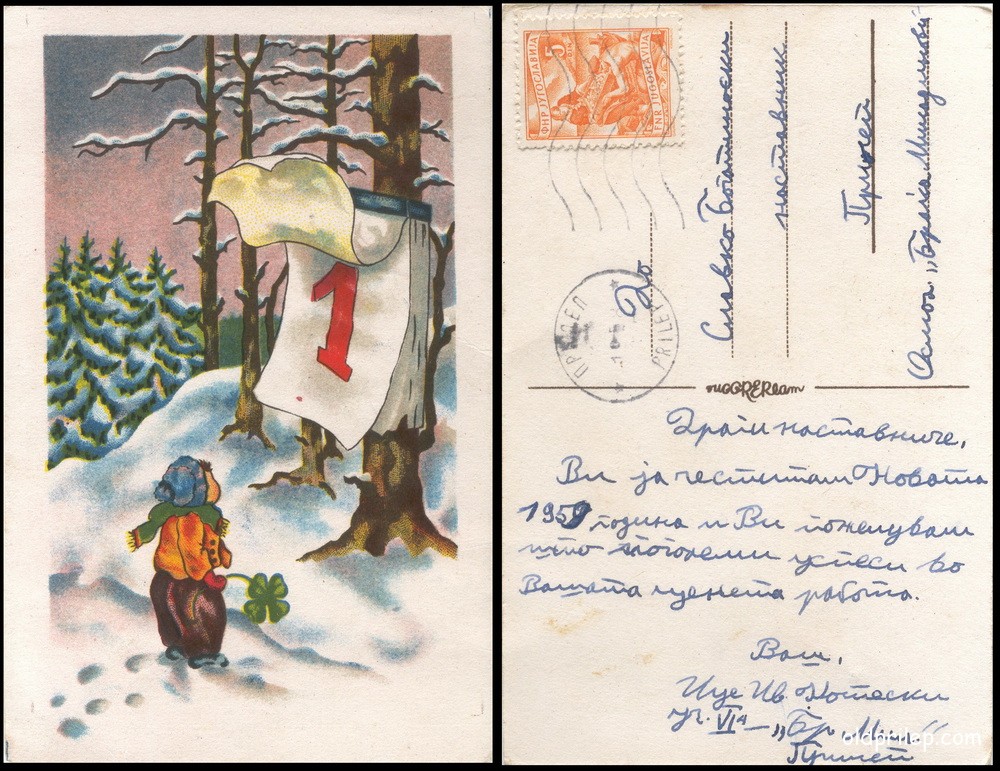 1
ФНР ЈУГОСЛАВИЈА
5
DIN
FNR JUGOSLAVIJA
ПРИЛЕП
PRILEP
До
Славко Ботаџиоски
наставник
Прилеп
Осмол. „Браќа Мингинови“
Драги наставниче,
Ви ја честитам Новата
1959 година и Ви пожелувам
што поголеми успеси во
Вашата ценета работа.
Ваш,
Ице Ив. Котески
уч. VIа – „Бр. Минг.“
Прилеп
oldprilep.com